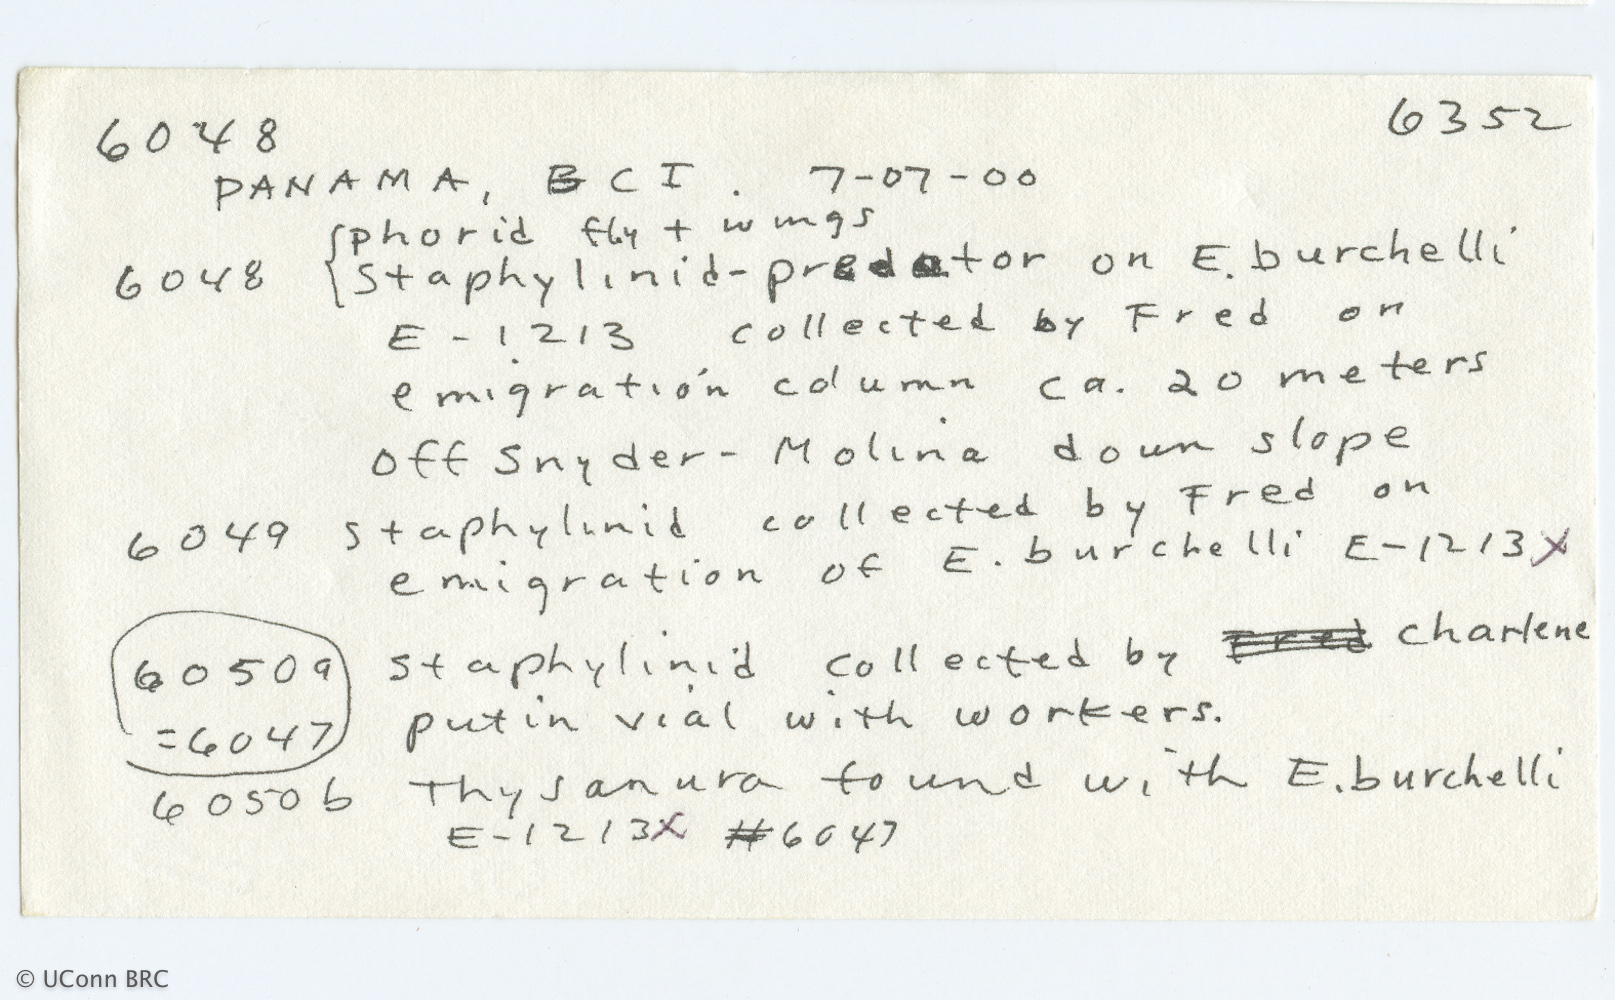 6048
6352
PANAMA, BCI. 7-07-00
phorid fly + wings
6048 staphylinid-predator on E. burchelli
E-1213 collected by Fred on
emigration column ca. 20 meters
off Snyder-Molina down slope
6049 staphylinid collected by Fred on
emigration of E. burchelli E-1213X
6050a staphylinid collected by Fred charlene
=6047 put in vial with workers.
6050b Thysanura found with E. burchelli
E-1213X #6047
© UConn BRC